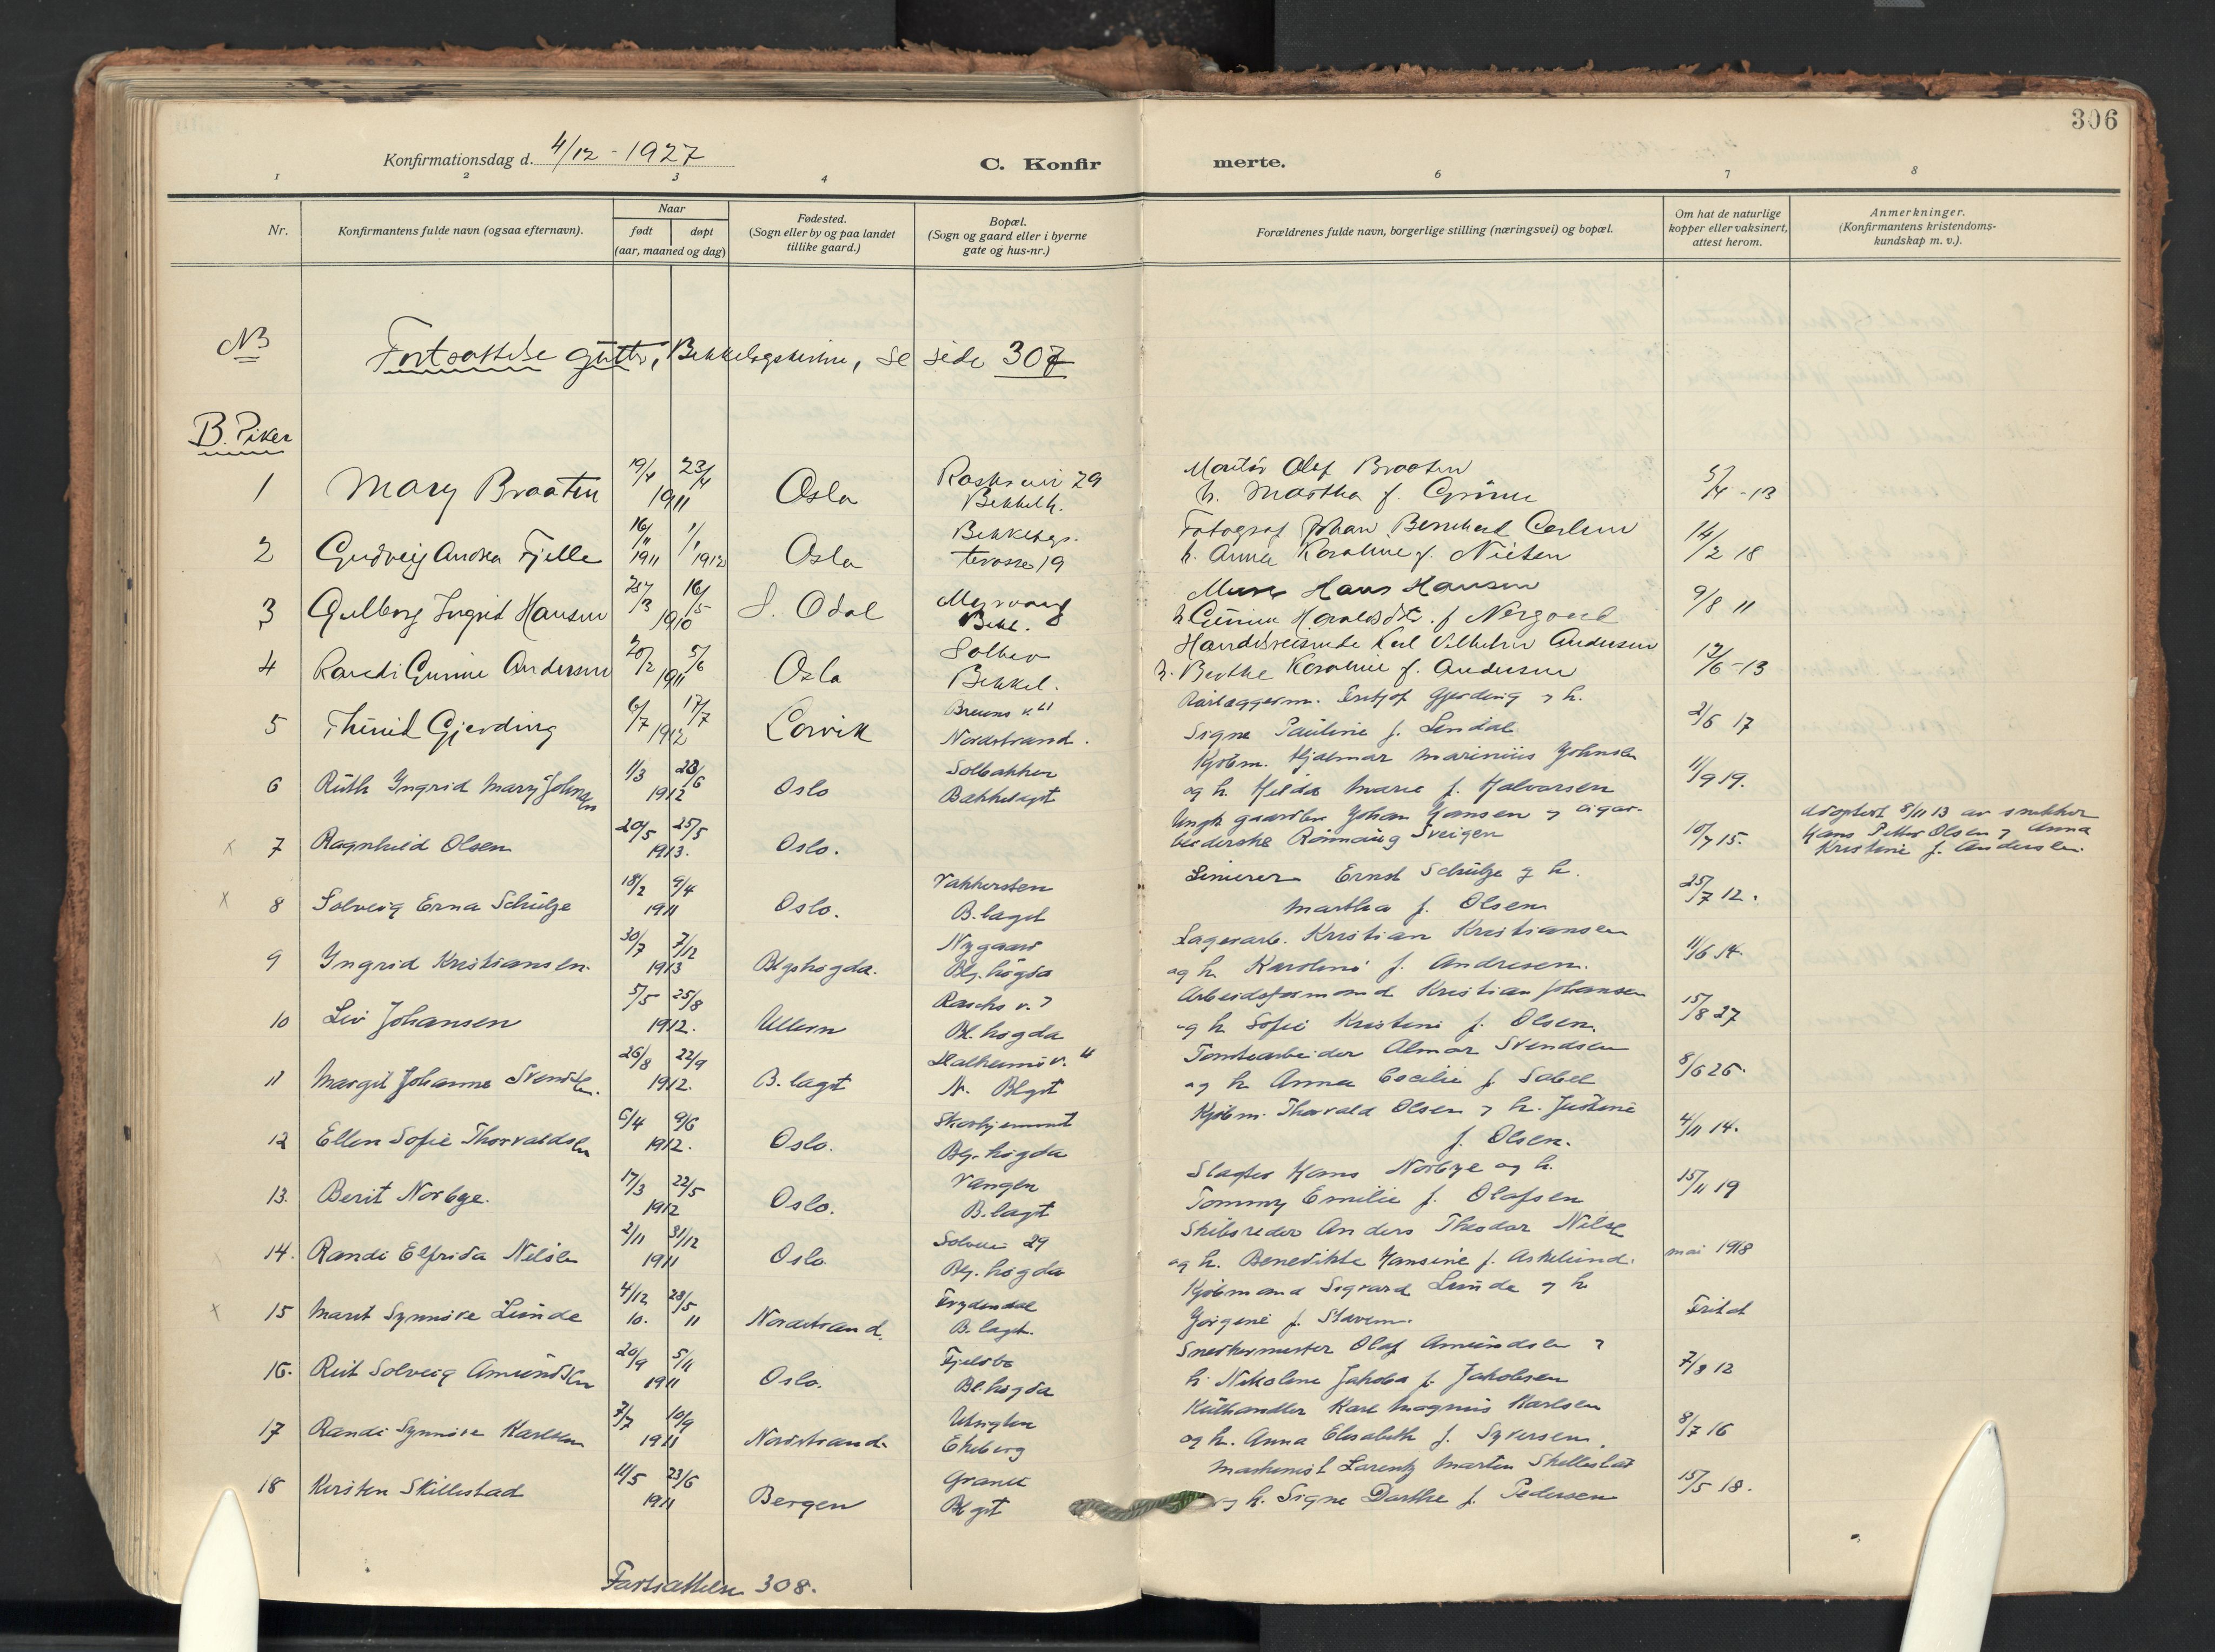 306
Konfirmationsdag d. 4/12 - 1927
C. Konfir
merte.
1 2 3 4 6 7 8
Nr.
Konfirmantens fulde navn (ogsaa efternavn).
Naar
født døpt
(aar, maaned og dag)
Fødested.
(Sogn eller by og paa landet
tillike gaard.)
Bopæl.
(Sogn og gaard eller i byerne
gate og hus-nr.)
Forældrenes fulde navn, borgerlige stilling (næringsvei) og bopæl.
Om hat de naturlige
kopper eller vaksinert,
attest herom.
Anmerkninger.
(Konfirmantens kristendoms-
kundskap m. v.).
NB
Fortsættelse gutter, se side 307
B. Piker
1 Mary Braaten 19/4 23/4 1911 Oslo 29 Bekkelh. Montør Olaf Braaten
h. Martha f. 5/4 - 13
2 Gudveig Andrea Fjelle 16/11 1911 1/1 1912 Oslo Bekkelags. terasse 19 Fotograf Johan Bernhard Carlsen
h. Anna Karoline f. Nielsen 14/2 18
3 Gulborg Ingrid Hansen 1910 S. Odal Myrvang Bekl. Murer Hans Hansen
h. Gunda Haraldsdt. f. Nergaard 9/8 11
4 Randi Gunne Andersen 20/2 5/6 1911 Oslo Solhev Bekkel. Handelsreisende Karl Vilhelm Andersen
h. Berthe Karoline f. Andersen 12/6 - 13
5 Thurid Gjerding 6/7 17/7 1912 Larvik Bruuns v. 11 Nordstrand. Rørlæggerm. Fritjof Gjerding og h.
Signe Pauline f. Lindal 2/6 17
6 Ruth Ingrid Mary Johnsen 1/3 23/6 1912 Oslo Solbakken Bækkelaget Kjøbm. Hjalmar Marinius Johnsen
og h. Hilda Marie f. Halvorsen 11/9 19.
x 7 Ragnhild Olsen 20/5 25/5 1913. Oslo. Ungk. Johan Hansen og cigar-
Rønnaug Sveigen 10/7 15. Adoptert 8/11 13 av snekker
Hans Petter Olsen og Anna
Kristine f. Andersen.
x 8 Solveig Erna Schulze 18/2 9/4 1911 Oslo. B. laget Linierer Ernst Schulze og h.
Martha f. Olsen 25/7 12.
9 Ingrid Kristiansen. 30/7 7/12 1913 Blgshøgda. Nygaard Blg. høgda Lagerarb. Kristian Kristiansen
og h. Karoline f. Andresen. 11/6 14.
10 Liv Johansen 5/5 25/8 1912. Ullern Raschs v. 7 Bl. høgda Arbeidsformand Kristian Johansen
og h. Sofie Kristine f. Olsen. 15/8 27
11 Margit Johanne Svendsen. 26/8 22/9 1912. B. laget N. Blgst Tomtearbeider Almar Svendsen
og h Anna Cecilie f. Sabel 8/6 26.
12 Ellen Sofie Thorvaldsen 6/4 9/6 1912. Oslo. Blg. høgda Kjøbm. Thorvald Olsen og h. Justine
f. Olsen. 4/11 14.
13. Berit Norbye. 17/3 22/5 1912 Oslo. Vangen B. laget Slagter Hans Norbye og h.
Tommy Emilie f. Olafsen 15/11 19
14. Randi Elfrida Nilsen 2/11 31/12 1911 Oslo Solvei 29 Blg. høgda Skibsreder Anders Theodor Nilsen
og h. Benedikte Hansine f. Askelund. mai 1918
x 15 Marit Synnøve Lunde 4/12 10. 28/5 11 Nordstrand. Frydendal B. laget. Kjøbmand Sigvard Lunde og h
Jørgine f. Stavem. Fritat
16. Rut Solveig Amundsen 20/9 5/11 1911 Oslo. Fjelsbo Bl. høgda Snedkermester Olaf Amundsen og
h. Nikoline Jakoba f. Jakobsen 7/8 12
17 Randi Synnøve Karlsen 7/7 10/9 1911 Nordstrand. Utsigten Ekeberg Kulhandler Karl Magnus Karlsen
og h. Anna Elisabeth f. Syversen. 8/7 16
18 Kirsten Skillestad 11/5 23/6 1911 Bergen Granli Blgst Maskinist Lorentz Martin Skillestad
og h. Signe Dorthe f. Pedersen 15/5 18.
Fortsættelse 308.